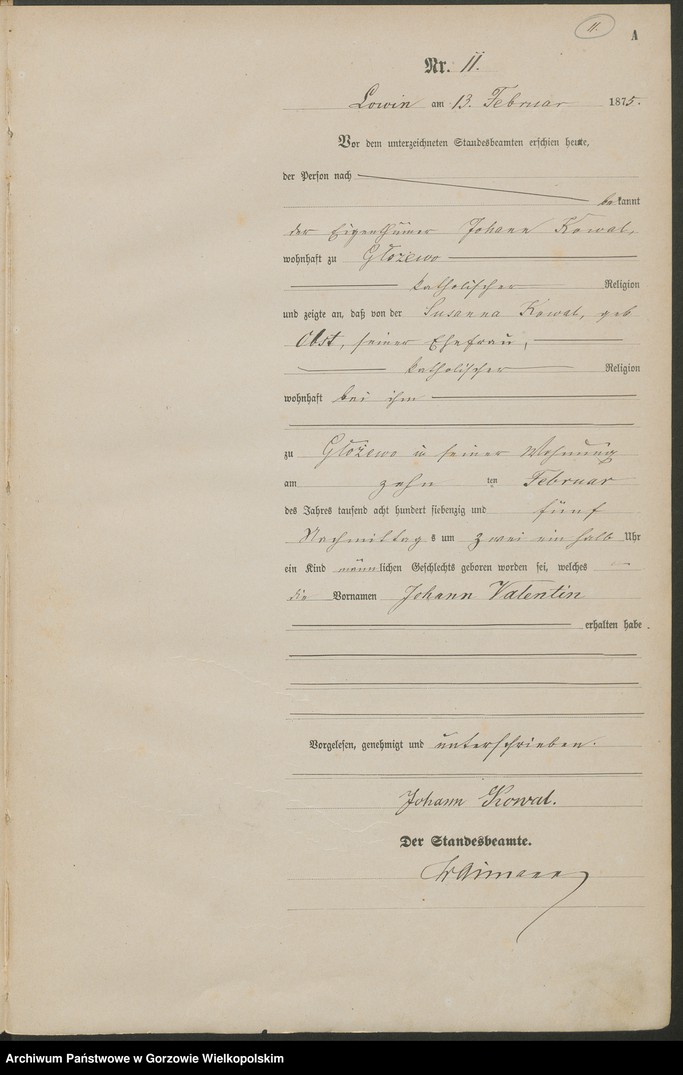 11.
A
Nr. 11.
Lowin am 13. Februar 1875.
Vor dem unterzeichneten Standesbeamten erschien heute,
der Person nach
bekannt
der Eigenthümer Johann Kowal,
wohnhaft zu Głożewo
katholischer Religion
und zeigte an, daß von der Susanna Kowal, geb
Obst, seiner Ehefrau,
katholischer Religion
wohnhaft bei ihm
zu Głożewo in seiner Wohnung
am zehn ten Februar
des Jahres tausend acht hundert siebenzig und fünf
Nachmittag s um zwei ein halb Uhr
ein Kind männlichen Geschlechts geboren worden sei, welches
die Vornamen Johann Valentin
erhalten habe.
Vorgelesen, genehmigt und unterschrieben.
Johann Kowal.
Der Standesbeamte.
Archiwum Państwowe w Gorzowie Wielkopolskim